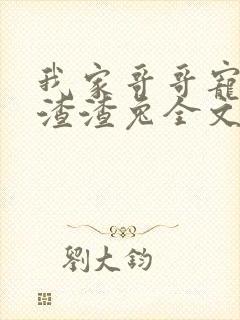 我家哥哥寵
渣渣兔全文
劉大鈞